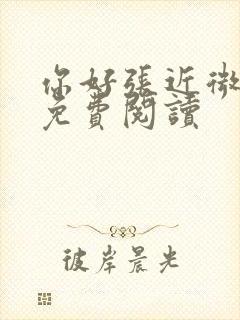 你好張近微
免費閱讀
彼岸晨光